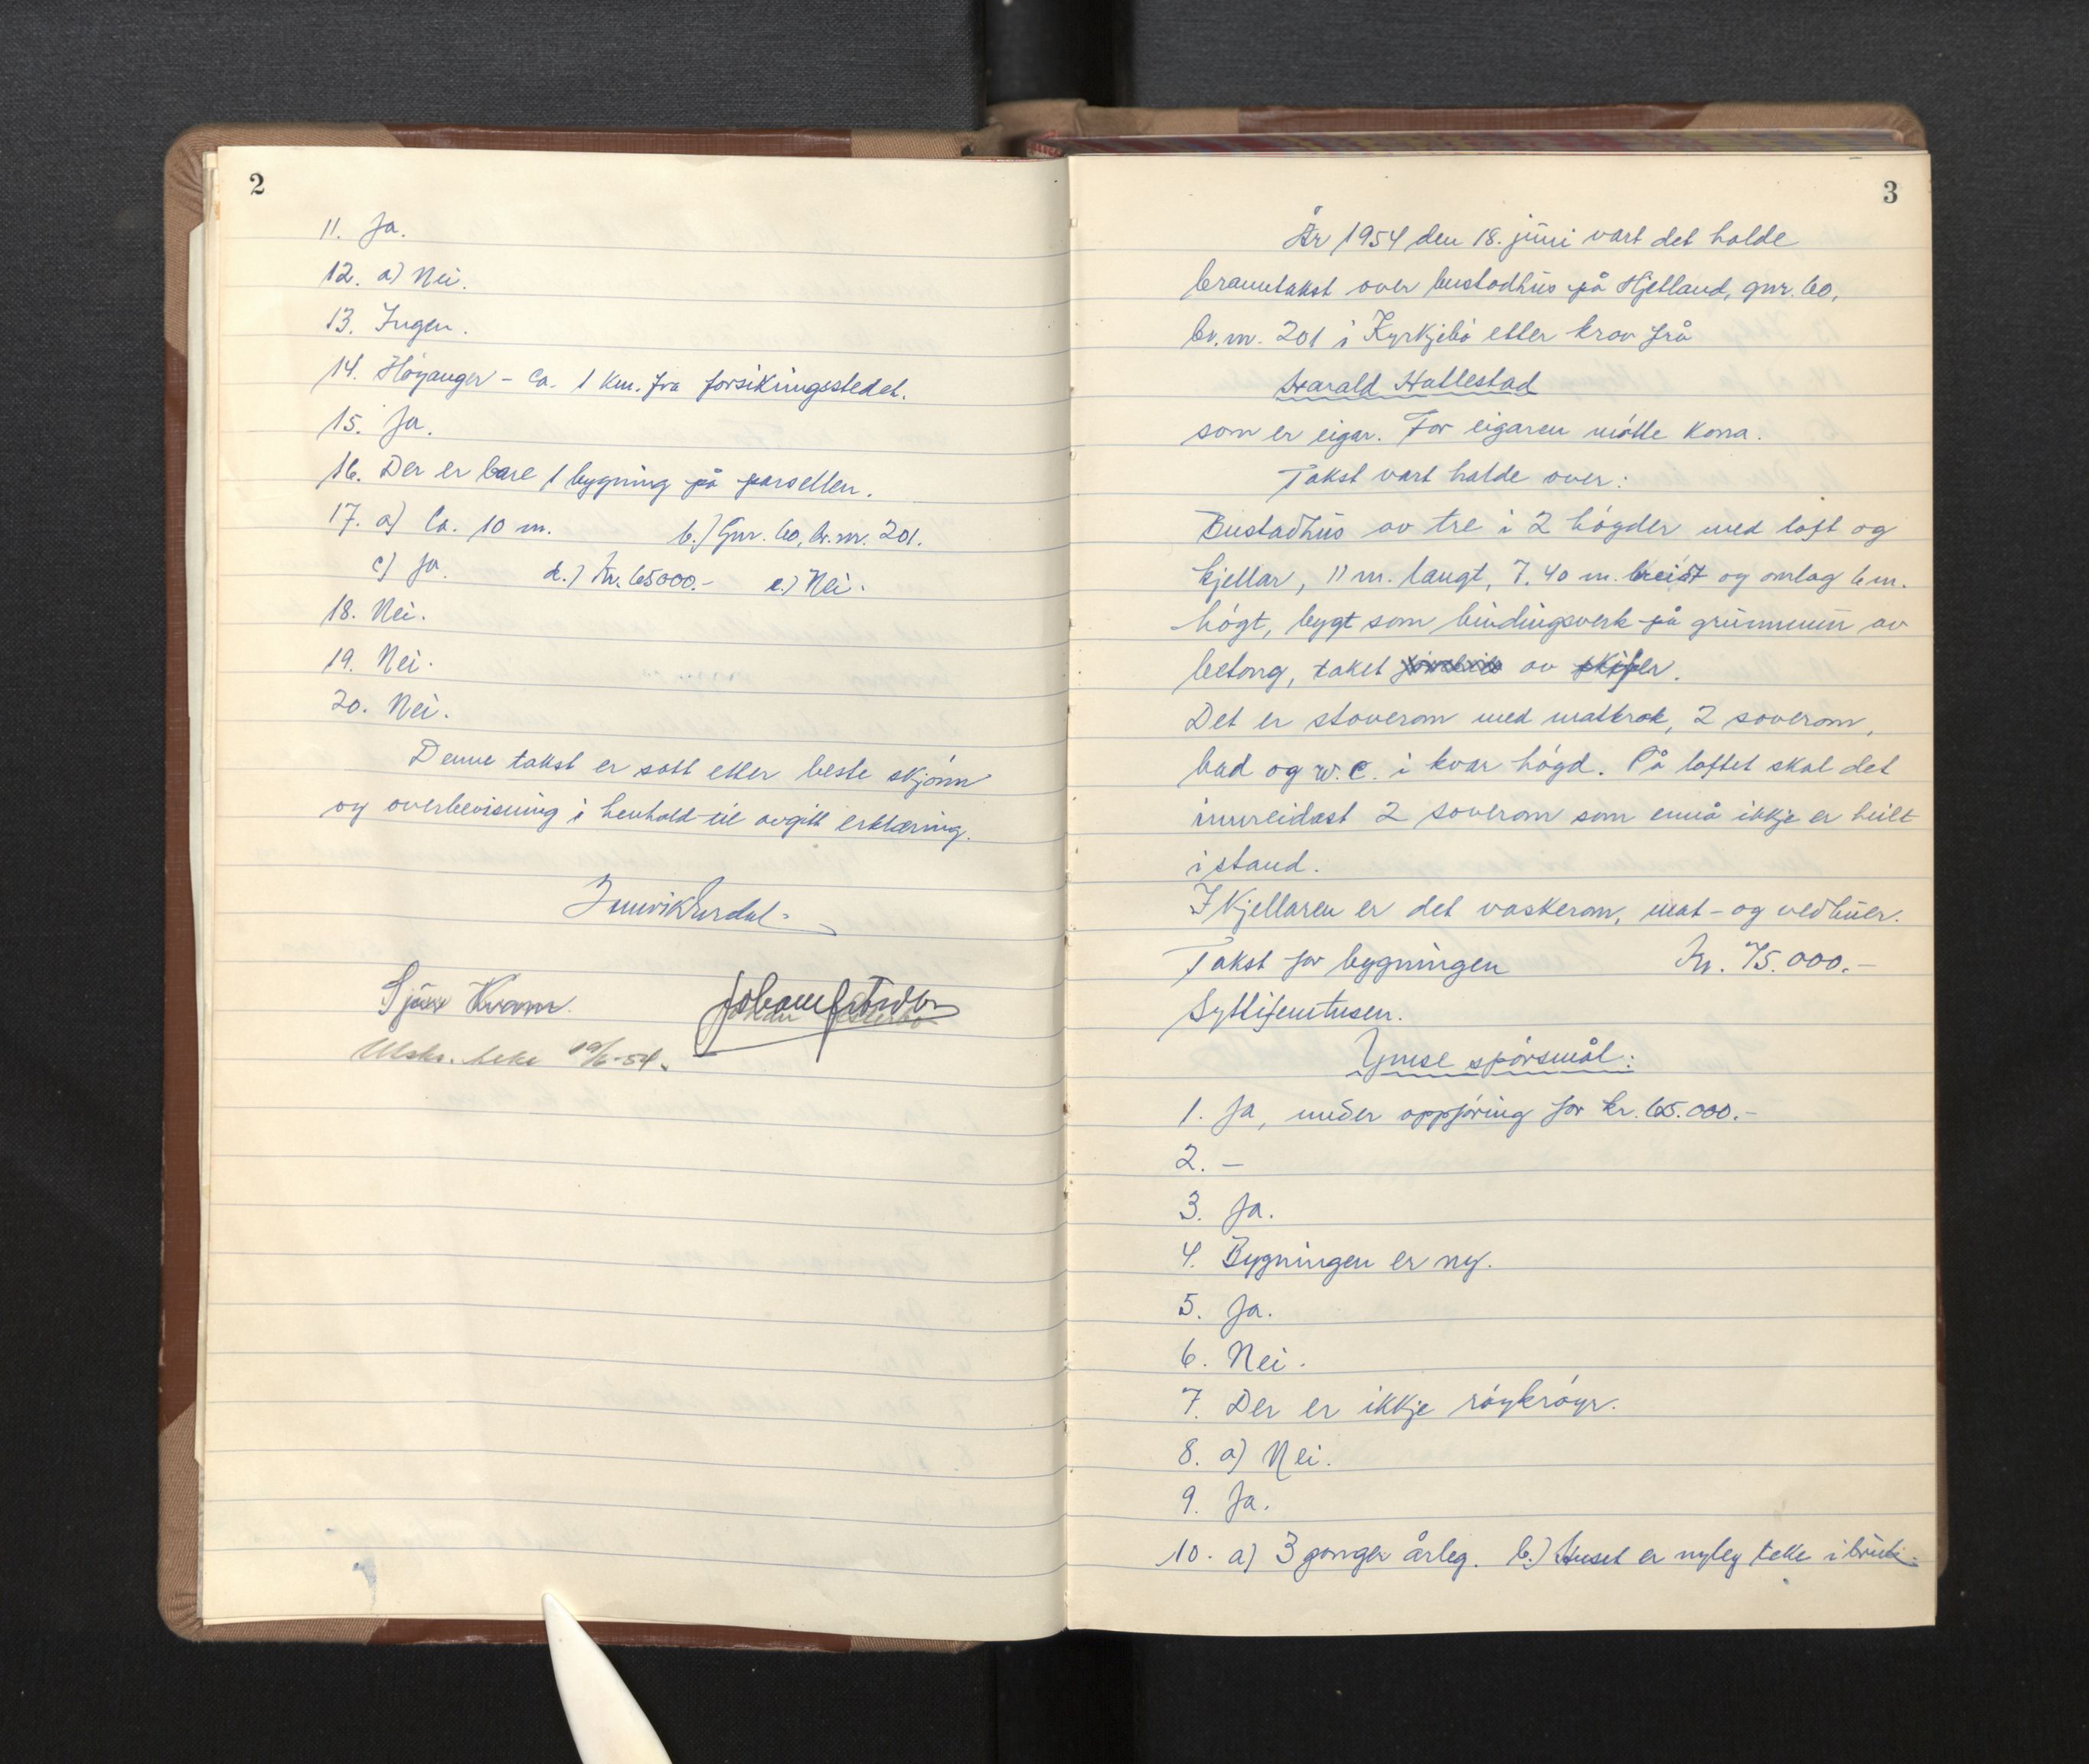 2
11. Ja.
12. a) Nei.
13. Ingen.
14. Høyanger - Ca. 1 km. fra forsikringsstedet.
15. Ja.
16. Der er bare 1 bygning på parsellen.
17. a) Ca. 10 m. b.) Gnr. 60, br.nr. 201.
c) Ja. d.) Kr. 65000.- e.) Nei.
18. Nei.
19. Nei.
20. Nei.
Denne takst er satt etter beste skjønn
og overbevisning i henhold til avgitt erklæring.
Kvamr.
Utskr. 19/6-54.
3
År 1954 den 18. juni vart det halde
branntakst over bustadhus på Hjetland, gnr. 60,
br.nr. 201 i Kyrkjebø etter krav frå
Harald Hatlestad
som er eigar. For eigaren møtte kona.
Takst vart halde over:
Bustadhus av tre i 2 høgder med loft og
kjellar, 11 m. langt, 7.40 m. breidt og omlag 6 m.
høgt, bygt som bindingsverk på grunnmur av
betong, taket av skifer.
Det er stoverom med matkrok, 2 soverom,
bad og w.c. i kvar høgd. På loftet skal det
innreidast 2 soverom som ennå ikkje er heilt
i stand.
I kjellaren er det vaskerom, mat- og vedbuer.
Takst for bygningen Kr. 75.000.-
Syttifemtusen.
Ymse spørsmål:
1. Ja, under oppføring for kr. 65.000.-
2. -
3. Ja.
4. Bygningen er ny.
5. Ja.
6. Nei.
7. Der er ikkje røykrøyr.
8. a) Nei.
9. Ja.
10. a) 3 gonger årleg. b.) Huset er nyleg teke i bruk.